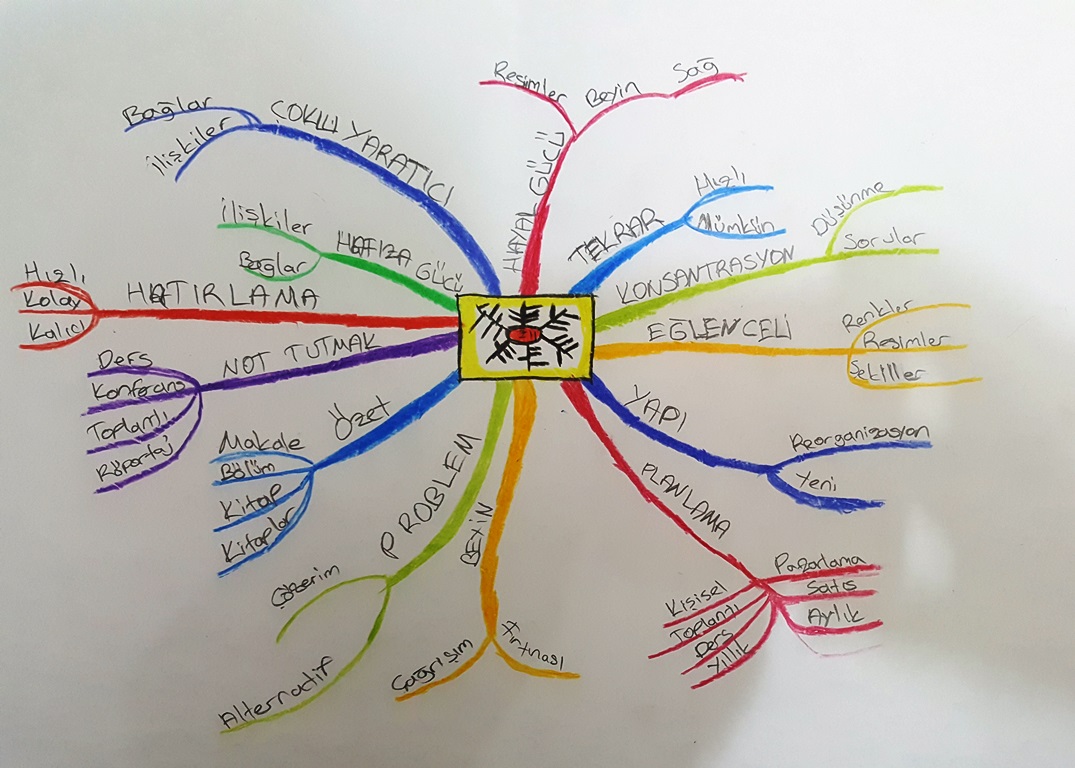 HAYAL GÜCÜ
Resimler
Beyin
Sağ
TEKRAR
Hızlı
Mümkün
KONSANTRASYON
Düşünme
Sorular
EĞLENCELİ
Renkler
Resimler
Şekiller
YAPI
Reorganizasyon
Yeni
PLANLAMA
Pazarlama
Satış
Aylık
Kişisel
Toplantı
Ders
Yıllık
BEYİN
Fırtınası
Çağrışım
PROBLEM
Çözerim
Alternatif
Özet
Makale
Bölüm
Kitap
Kitaplar
NOT TUTMAK
Ders
Konferans
Toplantı
Röportaj
HATIRLAMA
Hızlı
Kolay
Kalıcı
HAFIZA GÜCÜ
ilişkiler
Bağlar
ÇOKLU YARATICI
Bağlar
ilişkiler